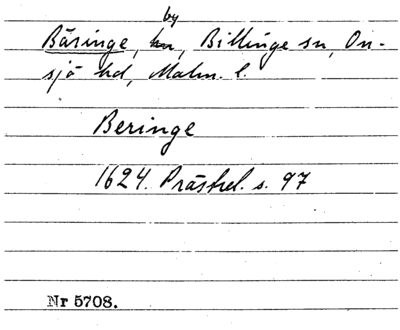 by
Bäringe, hn, Billinge sn, On-
sjö hd, Malm. l.
Beringe
1624. Prästrel. s. 97
Nr 5708.